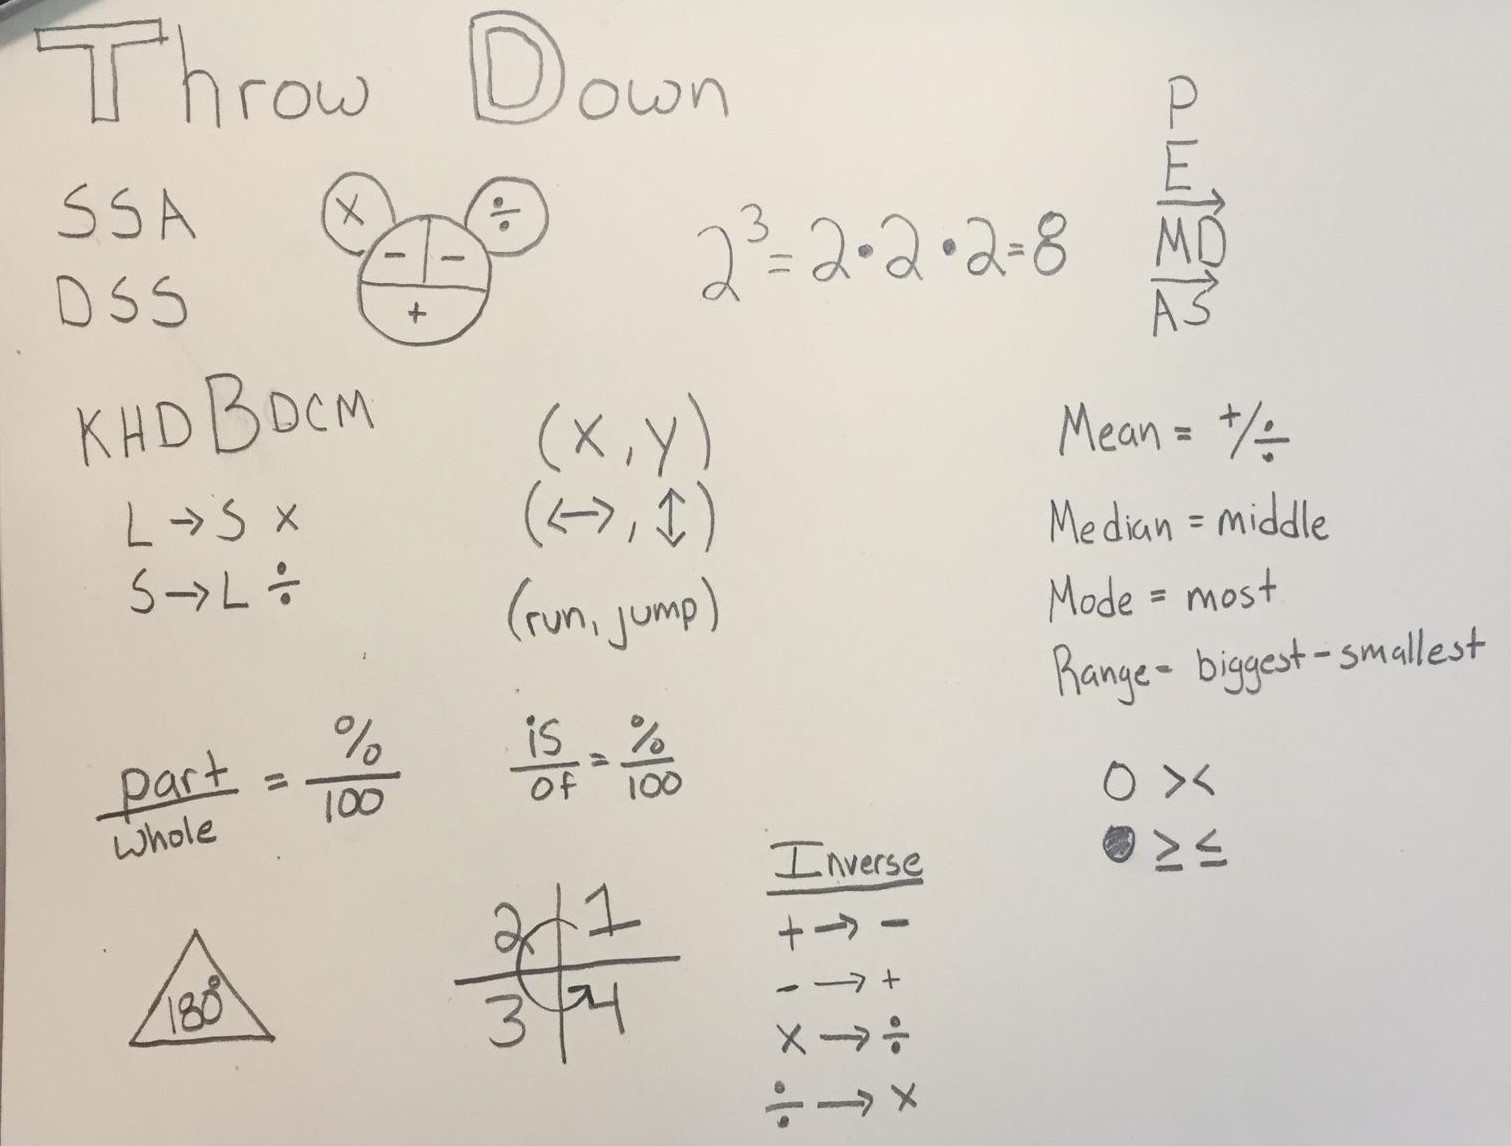 Throw Down
SSA
DSS
× ÷
- -
+
2³=2•2•2=8
P
E
MD
AS
KHDBDCM
L→S ×
S→L ÷
(x,y)
(↔,↕)
(run, jump)
Mean = +/÷
Median = middle
Mode = most
Range- biggest-smallest
part/whole = %/100
is/of = %/100
O ><
● ≥ ≤
180°
2 1
3 4
Inverse
+ → -
- → +
× → ÷
÷ → ×